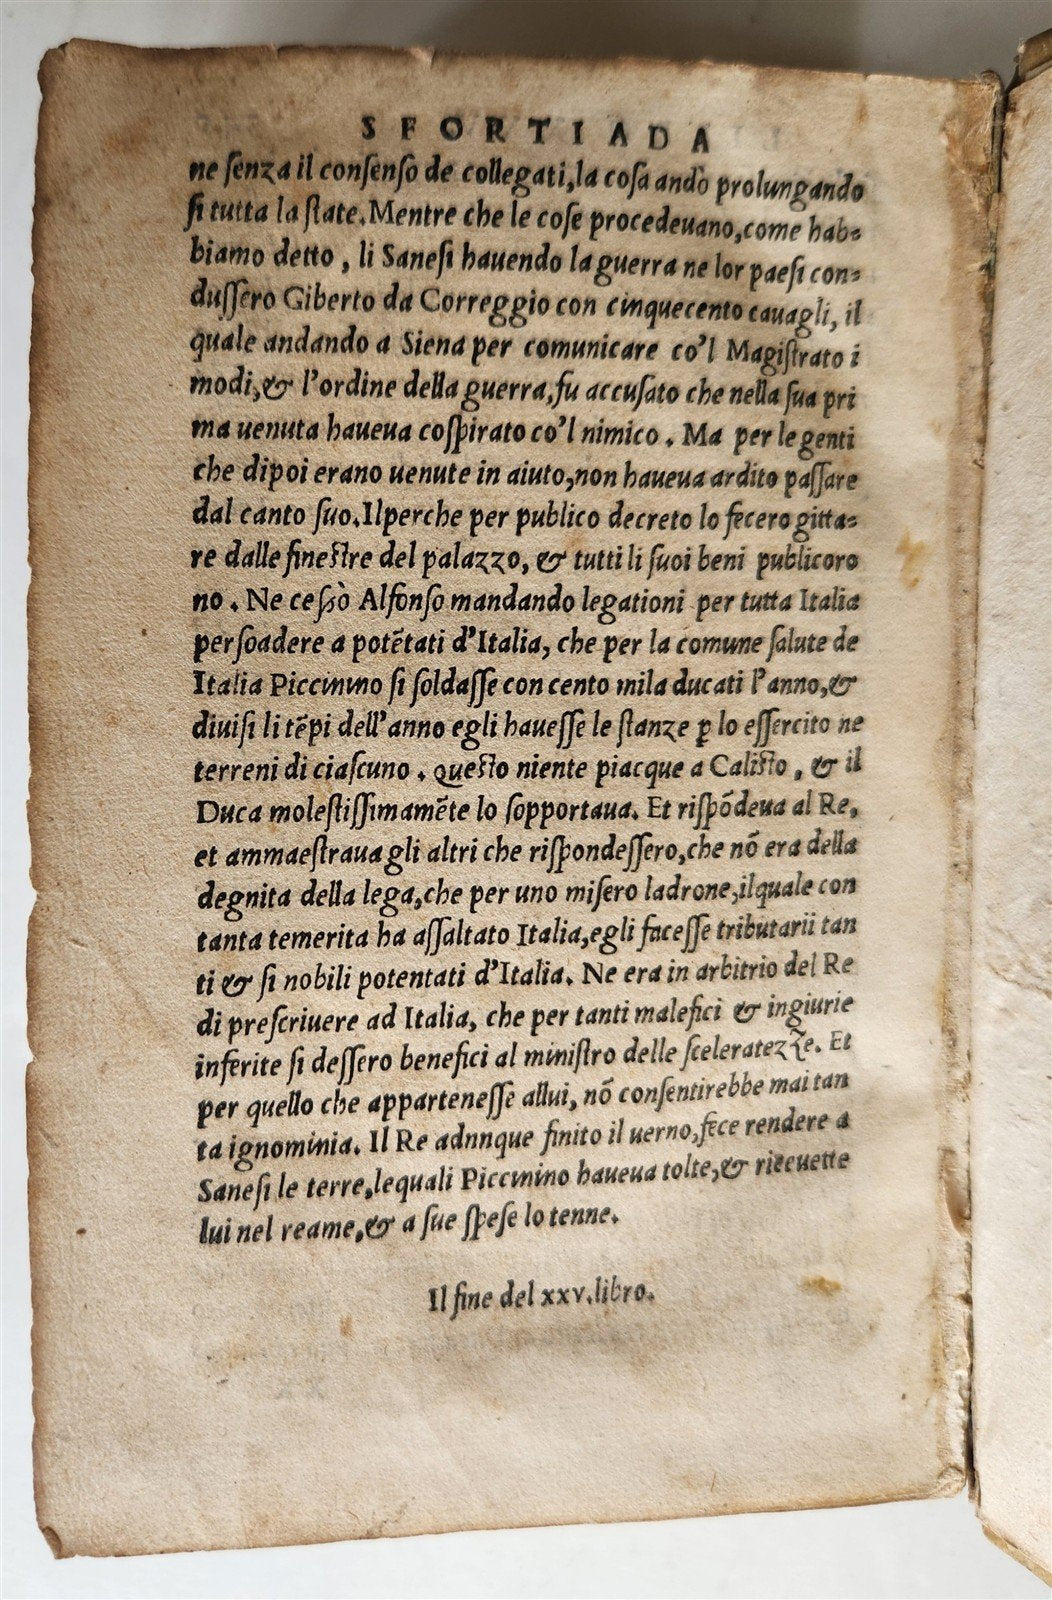 SFORTIADA
ne ſenza il conſenſo de collegati,la coſa ando prolungando
ſi tutta la ſtate.Mentre che le coſe procedeuano,come hab=
biamo detto , li Saneſi hauendo la guerra ne lor paeſi con=
duſſero Giberto da Correggio con cinquecento cauagli, il
quale andando a Siena per comunicare co'l Magiſtrato i
modi,& l'ordine della guerra,fu accuſato che nella ſua pri
ma uenuta haueua coſpirato co'l nimico . Ma per le genti
che dipoi erano uenute in aiuto,non haueua ardito paſſare
dal canto ſuo.Ilperche per publico decreto lo fecero gitta=
re dalle fineſtre del palazzo, & tutti li ſuoi beni publicoro
no . Ne ceſſò Alfonſo mandando legationi per tutta Italia
perſoadere a potẽtati d'Italia, che per la comune ſalute de
Italia Piccinino ſi ſoldaſſe con cento mila ducati l'anno,&
diuiſi li tẽpi dell'anno egli haueſſe le ſtanze ꝑ lo eſſercito ne
terreni di ciaſcuno . Queſto niente piacque a Caliſto , & il
Duca moleſtiſſimamẽte lo ſopportaua. Et riſpõdeua al Re,
et ammaeſtraua gli altri che riſpondeſſero,che nõ era della
degnita della lega,che per uno miſero ladrone,ilquale con
tanta temerita ha aſſaltato Italia,egli faceſſe tributarii tan
ti & ſi nobili potentati d'Italia. Ne era in arbitrio del Re
di preſcriuere ad Italia, che per tanti malefici & ingiurie
inferite ſi deſſero benefici al miniſtro delle ſceleratezze. Et
per quello che apparteneſſe allui, nõ conſentirebbe mai tan
ta ignominia. Il Re adnnque finito il uerno,fece rendere a
Saneſi le terre,lequali Piccinino haueua tolte,& riceuette
lui nel reame,& a ſue ſpeſe lo tenne.
Il fine del xxv.libro.